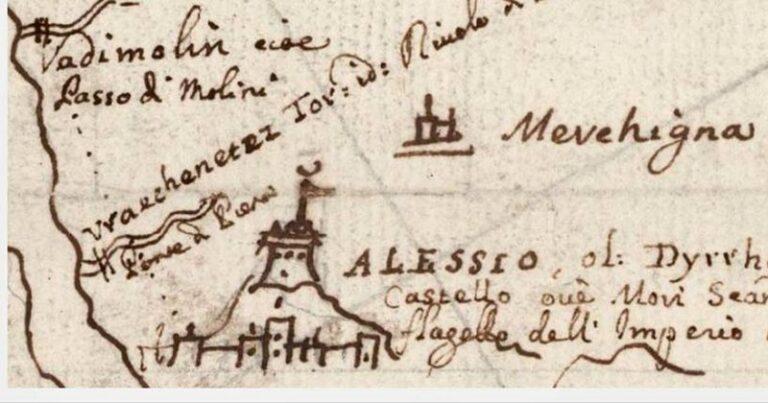 Vadimolin cioe
Passo di Molini
Vraechenetez Tor: id: Rivolo di
Ponte di Piera
Mevehigna
ALESSIO, ol: Dyrrh
Castello ove Mori Scan
flagello dell' Imperio